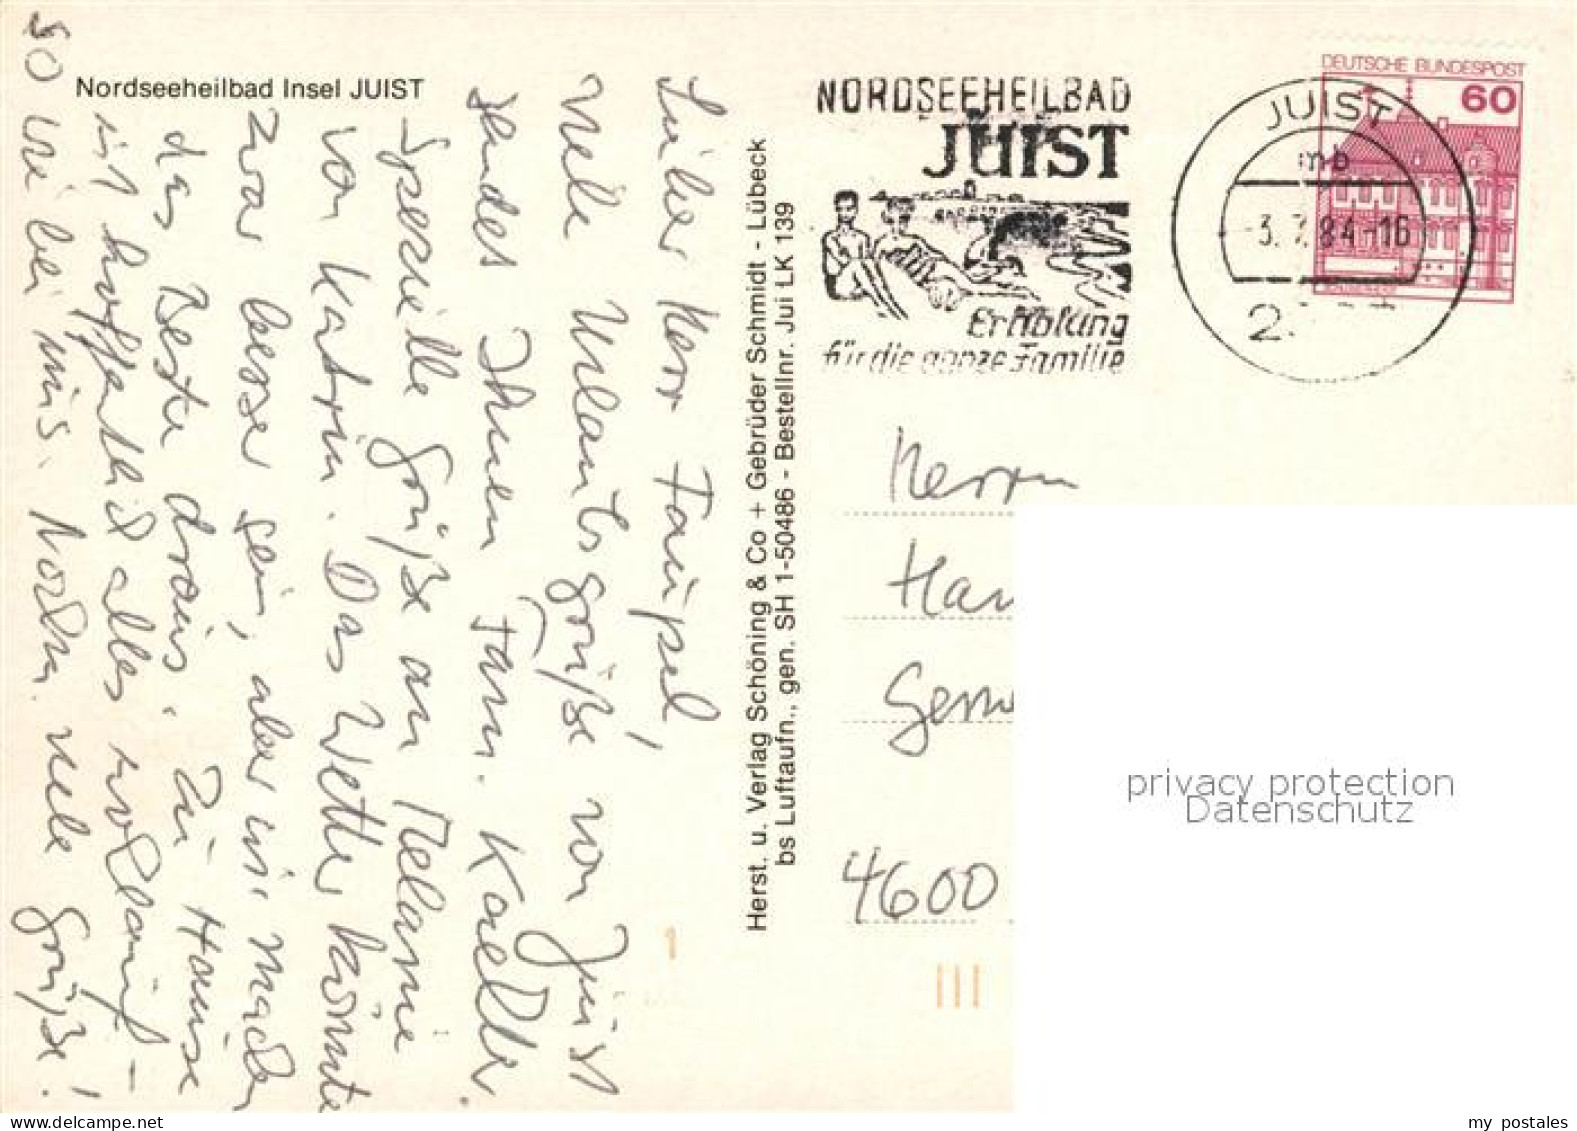 Nordseeheilbad Insel JUIST
Lieber Herr Faupel,
Viele Urlaubsgrüße von Juist
sendet Ihnen Fam. Koeller.
Spezielle Grüße an Melanie
von Katrin. Das Wetter könnte
zwar besser sein, aber wir machen
das Beste draus. Zu Hause
ist hoffentlich alles wohlauf -
so wie bei uns. Nochm. viele Grüße!
Herst. u. Verlag Schöning & Co + Gebrüder Schmidt - Lübeck
bs Luftaufn., gen. SH 1-50486 - Bestellnr. Jui LK 139
NORDSEEHEILBAD
JUIST
Erholung
für die ganze Familie
JUIST
mb
-3.7.84-16
2
DEUTSCHE BUNDESPOST
60
Herrn
Han
4600
privacy protection
Datenschutz
1
my postales
www.delcampe.net